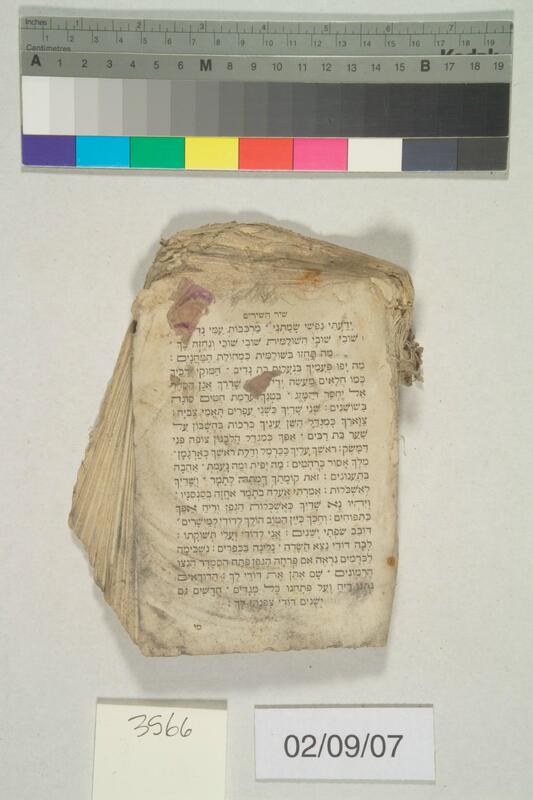 Inches 1 2 3 4 5 6 7
1 2 3 4 5 6 7 8 9 10 11 12 13 14 15 16 17 18 19
Centimetres Kodak
A 1 2 3 4 5 6 M 8 9 10 11 12 13 14 15 B 17 18 19
שיר השירים
ידעתי נפשי שמתני מרכבות עמי
שובי שובי השולמית שובי שובי ונחזה בך
מה תחזו בשולמית כמחולת המחנים:
מה יפו פעמיך בנעלים בת נדיב חמוקי ירכיך
כמו חלאים מעשה שררך אגן הסהר
אל יחסר המזג בטנך ערמת חטים סוגה
בשושנים: שני שדיך כשני עפרים תאמי צביה:
צוארך כמגדל השן עיניך ברכות בחשבון על
שער בת רבים אפך כמגדל הלבנון צופה פני
דמשק: ראשך עליך ככרמל ודלת ראשך כארגמן
מלך אסור ברהטים: מה יפית ומה נעמת אהבה
בתענוגים: זאת קומתך דמתה לתמר ושדיך
לאשכלות: אמרתי אעלה בתמר אחזה בסנסניו
ויהיו נא שדיך כאשכלות הגפן וריח אפך
כתפוחים: וחכך כיין הטוב הולך לדודי למישרים
דובב שפתי ישנים: אני לדודי ועלי תשוקתו:
לכה דודי נצא השדה נלינה בכפרים: נשכימה
לכרמים נראה אם פרחה הגפן פתח הסמדר הנצו
הרמונים שם אתן את דודי לך: הדודאים
נתנו ריח ועל פתחנו כל מגדים חדשים גם
ישנים דודי צפנתי לך:
3566
02/09/07